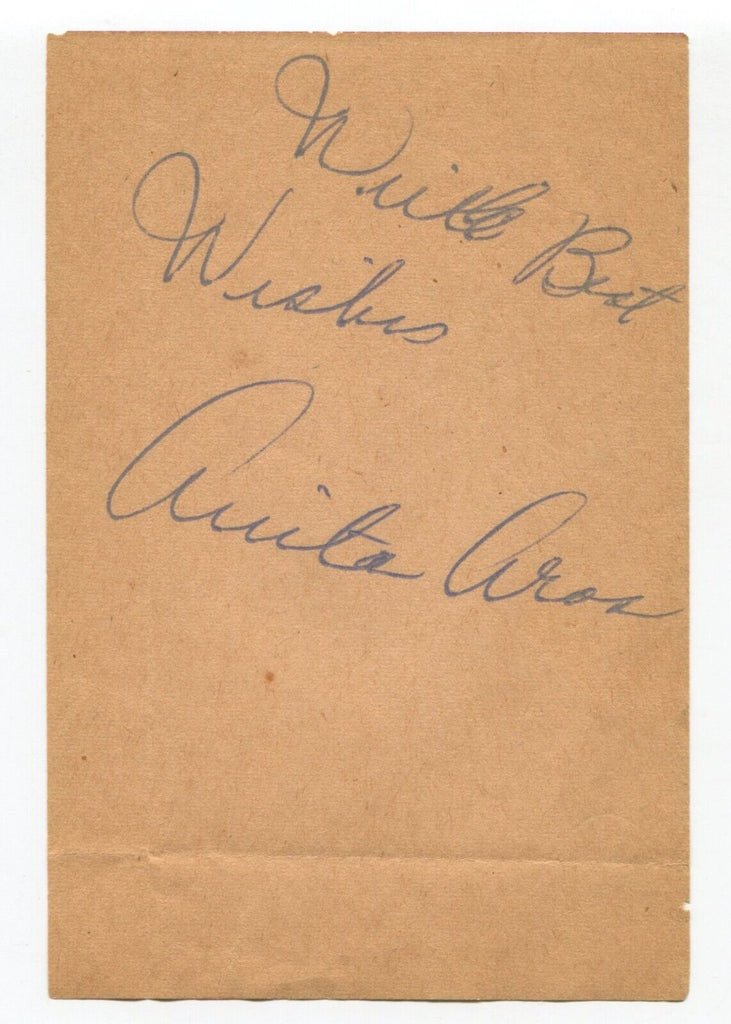 With Best
Wishes
Anita Aros